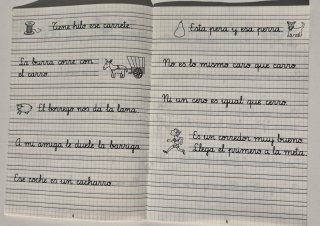 Tiene hilo ese carrete.
La burra corre con
el carro.
El borrego nos da la lana.
A mi amiga le duele la barriga.
Ese coche es un cacharro.
Esta pera y esa perra.
No es lo mismo caro que carro.
Ni un cero es igual que cerro.
Es un corredor muy bueno.
Llega el primero a la meta.